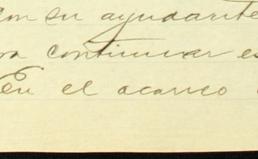 con su ayudante
continuar es
En el acarreo